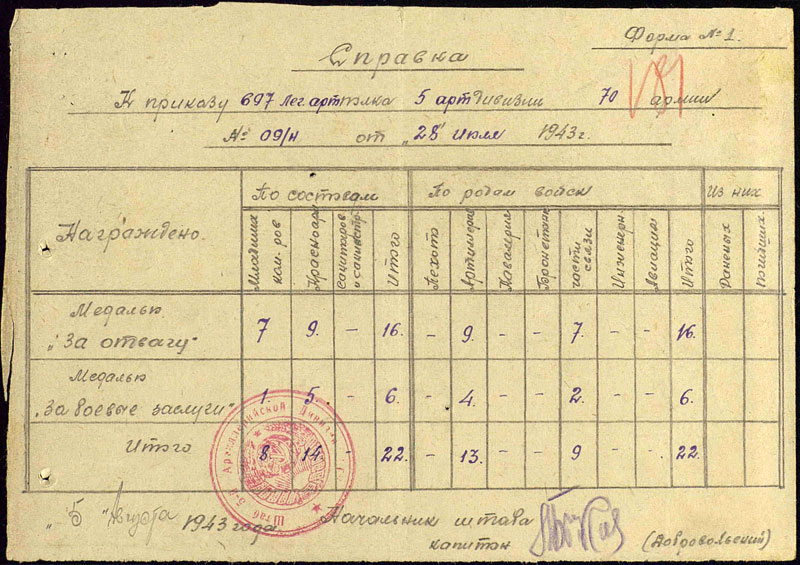 Форма № 1.
Справка
К приказу 697 лег. артполка 5 артдивизии 70 армии
№ 09/н от "28" июля 1943 г.
Награждено.
По составам
По родам войск
Из них
Младших ком-ров
Красноарм
санитаров и санинстр.
Итого
Пехота
Артиллерия
Кавалерия
Бронетанк
части связи
Инженерн
Авиация
Итого
Раненых
Погибших
Медалью "За отвагу" 7 9. - 16. - 9. - - 7. - - 16.
Медалью "За боевые заслуги" 1. 5. - 6. - 4. - - 2. - - 6.
Итого 8. 14. - 22. - 13. - - 9 - - 22.
Штаб 5-й Артиллерийской Дивизии
"5" Августа 1943 года
Начальник штаба
капитан (Добровольский)